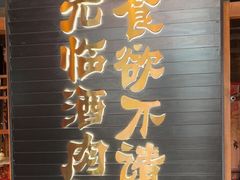 食欲不
光临酒肉